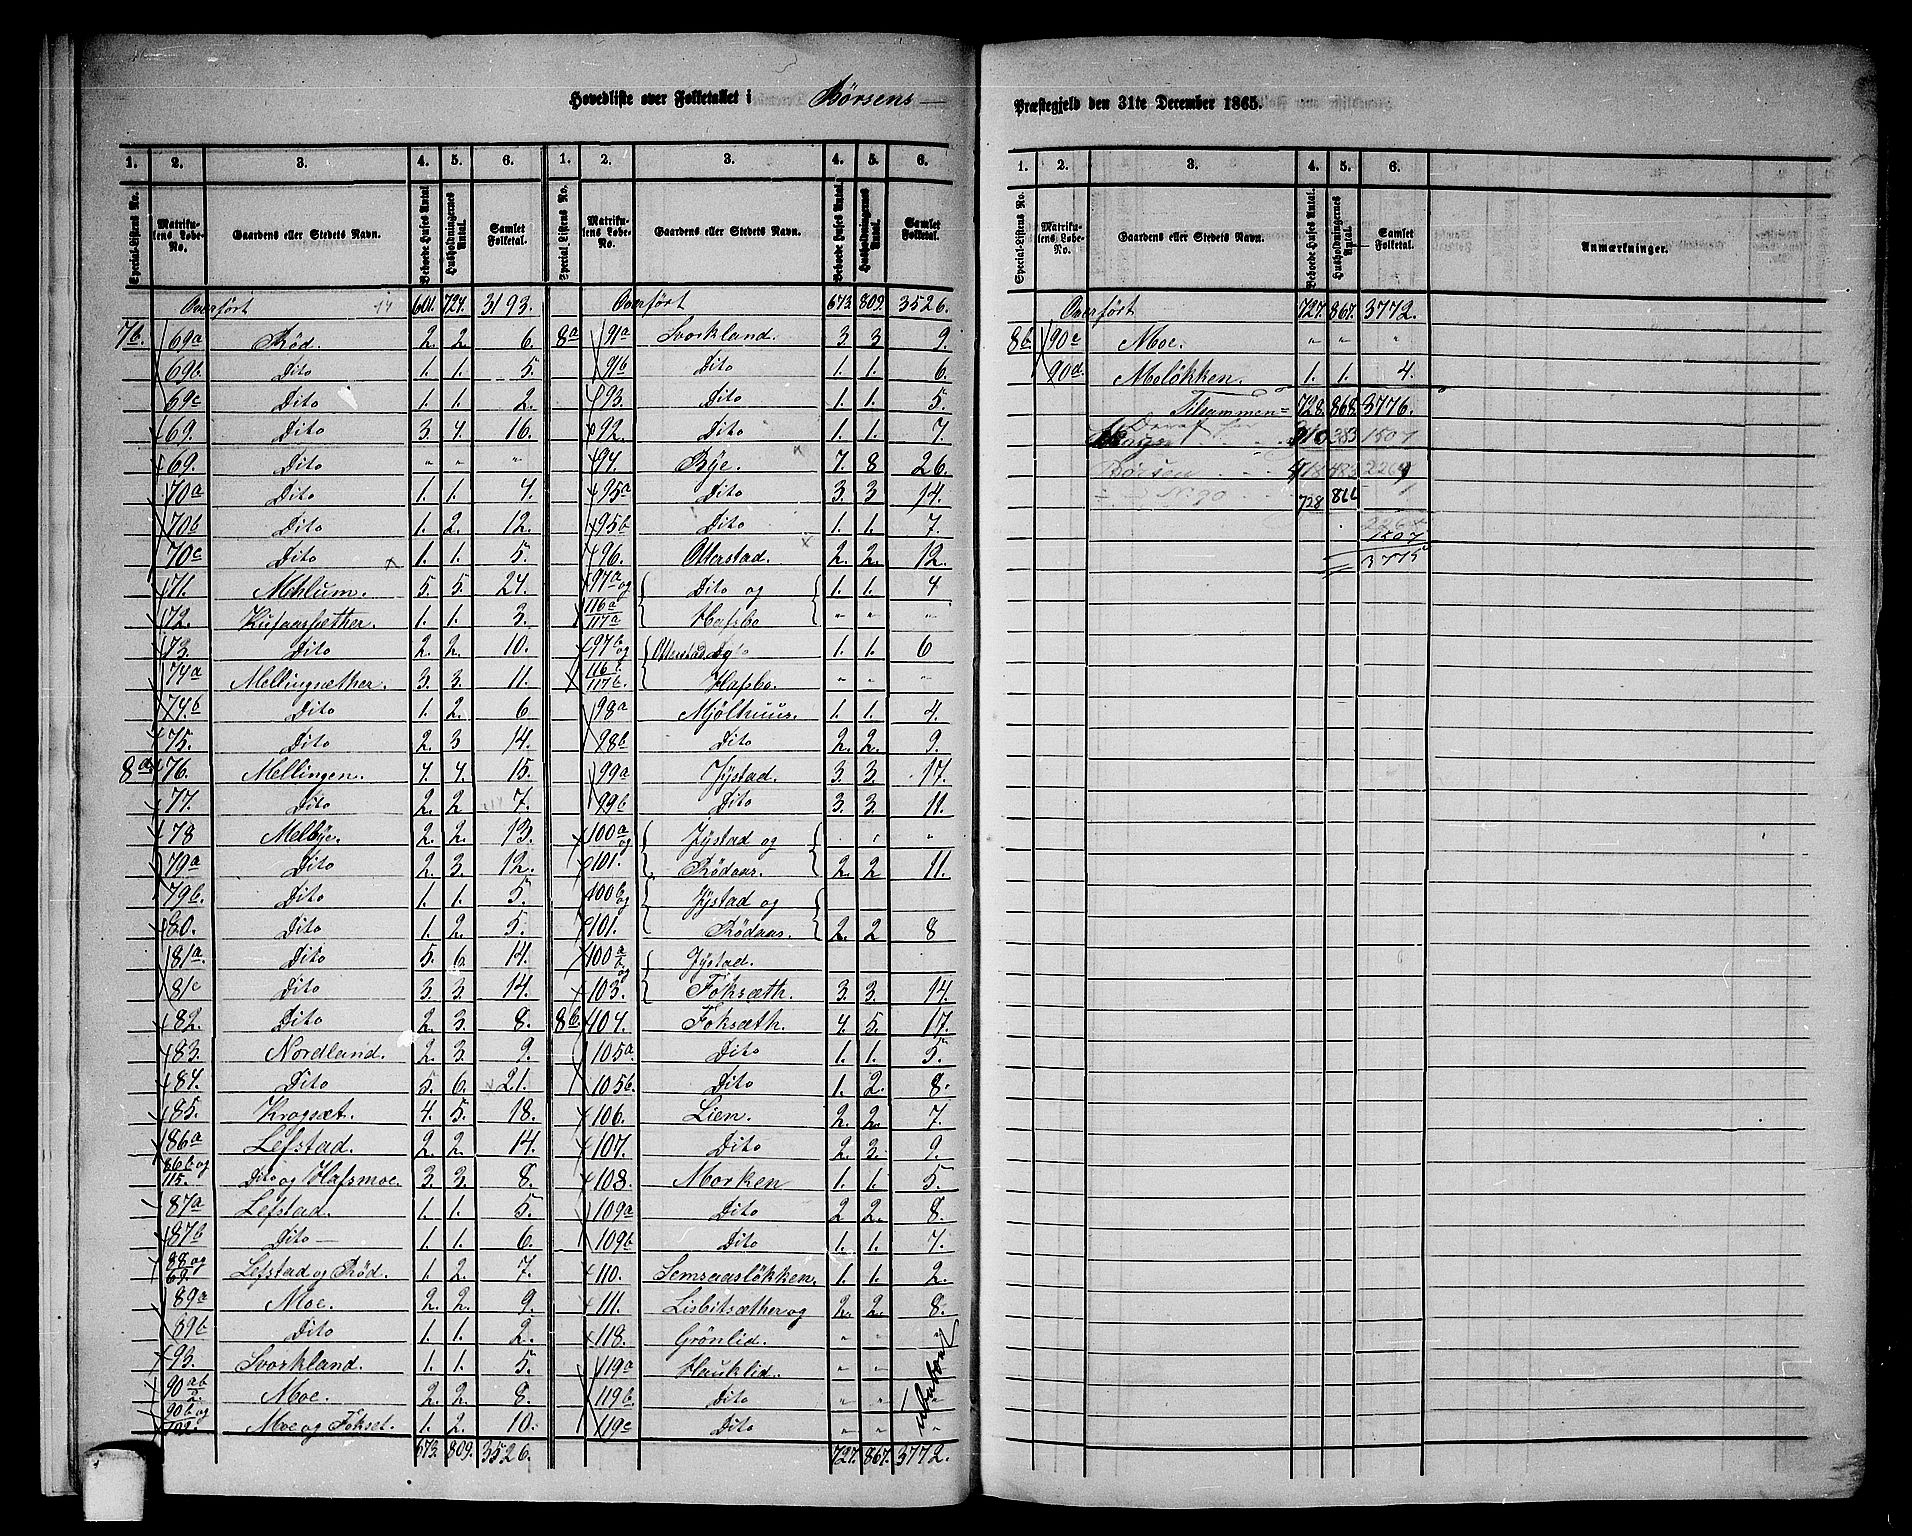 Hovedliste over Folketallet i Börsens
1. 2. 3. 4. 5. 6. 1. 2. 3. 4. 5. 6.
Special-Listens No. Matrikulens Løbe-No. Gaardens eller Stedets Navn. Beboede Huses Antal. Husholdningernes Antal. Samlet Folketal. Special-Listens No. Matrikulens Løbe-No. Gaardens eller Stedets Navn. Beboede Huses Antal. Husholdningernes Antal. Samlet Folketal.
Overfört 601. 724. 3193.
7b. 69a Röd. 2. 2. 6.
69b. Dito 1. 1. 5.
69c Dito 1. 1. 2.
69. Dito 3. 4. 16.
69. Dito " " "
70a Dito 1. 1. 4.
70b Dito 1. 2. 12.
70c Dito 1. 1. 5.
71. Mehlum. 5. 5. 24.
72. Kusaassæther. 1. 1. 3.
73. Dito 2. 2. 10.
74a Mellingsæther. 3. 3. 11.
74b Dito 1. 2. 6
75. Dito 2. 3 14.
8a 76. Mellingen. 4. 4. 15.
77. Dito 2. 2 7.
78 Melbye. 2. 2. 13.
79a Dito 2. 3. 12.
79b. Dito 1. 1. 5.
80. Dito 1. 2. 5.
81a. Dito 5. 6. 14.
81c Dito 3. 3. 14.
82. Dito 2. 3. 8.
83. Nordland. 2. 3. 9.
84. Dito 5. 6. 21.
85. Krogsæt. 4. 5. 18.
86a Lefstad. 2. 2. 14.
86b og 115. Dito og Hafsmoe. 3. 3. 8.
87a Lefstad. 1. 1. 5.
87b Dito 1. 1. 6.
88 og 69. Lefstad og Röd. 1. 2. 7.
89a Moe. 2. 2. 9.
89b Dito 1. 1. 2.
93. Svorkland. 1. 1. 5.
90ab Moe. 2. 2. 8.
90b og 102. Moe og Fokset. 1. 2. 10.
673. 809. 3526.
Overfört 673 809. 3526.
8a 91a Svorkland. 3 3 9.
91b Dito 1. 1. 6.
93. Dito 1. 1. 5.
92. Dito 1. 1. 7.
94. Bye. 7. 8 26.
95a Dito 3. 3 14.
95b Dito 1. 1. 7.
96. Otterstad. 2. 2. 12.
97a og Dito og 1. 1. 4
116a 117a Hafsbo " " "
97b og Otterstad og 1. 1. 6
116b. 117b. Hafsbo. " " "
98a Mjölhuus. 1. 1. 4.
98b Dito 2. 2. 9.
99a Jystad. 3. 3. 17.
99b Dito 3. 3. 11.
100a og Jystad og
101. Rödaas. 2. 2 11.
100b og Jystad og
101. Rödaas. 2. 2 8
100a b og Jystad.
103. Foksæth. 3. 3. 14.
8b. 104. Foksæth. 4. 5. 17.
105a Dito 1. 1. 5.
105b. Dito 1. 2. 8.
106. Lien. 2. 2. 7.
107. Dito 2. 2. 9.
108. Morken 1. 1. 5.
109a Dito 2 2. 8.
109b Dito 1. 1. 7.
110. Semsaaslökken. 1. 1. 2.
111. Lisbitsæther og 2. 2. 8.
118. Grönlid. " " "
119a Hauklid. " "
119b. Dito " " "
119c Dito " " "
ubeboet
727. 867. 3772.
Præstegjeld den 31te December 1865.
1. 2. 3. 4. 5. 6.
Special-Listens No. Matrikulens Løbe-No. Gaardens eller Stedets Navn. Beboede Huses Antal. Husholdningernes Antal. Samlet Folketal. Anmærkninger.
Overfört 727. 867. 3772.
8b. 90c Moe. " " "
90d Moelökken. 1. 1. 4.
Tilsammen 728. 868. 3776.
Deraf for
310 383 1507
Börsen
728
1507
3775